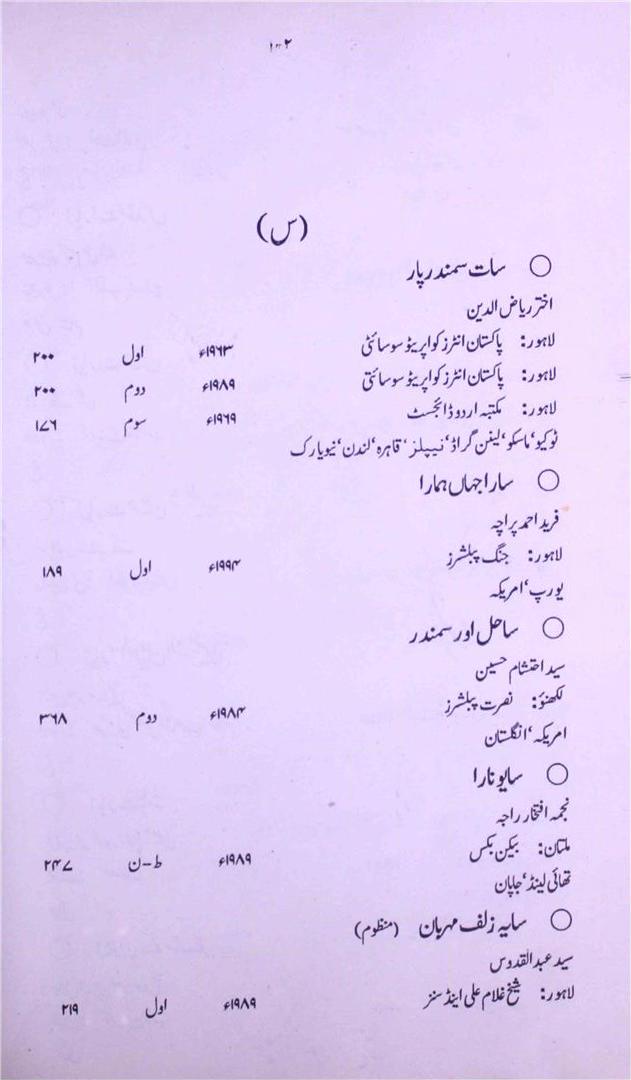 ۱۳۲
(س)
○ سات سمندر پار
اختر ریاض الدین
لاہور: پاکستان انٹرز کوآپریٹو سوسائٹی ۱۹۶۳ء اول ۲۰۰
لاہور: پاکستان انٹرز کوآپریٹو سوسائتی ۱۹۸۹ء دوم ۲۰۰
لاہور: مکتبہ اردو ڈائجسٹ ۱۹۶۹ء سوم ۱۷۶
ٹوکیو، ماسکو، لینن گراڈ، نیپلز، قاہرہ، لندن، نیویارک
○ سارا جہاں ہمارا
فرید احمد پراچہ
لاہور: جنگ پبلشرز ۱۹۹۴ء اول ۱۸۹
یورپ، امریکہ
○ ساحل اور سمندر
سید احتشام حسین
لکھنؤ: نصرت پبلشرز ۱۹۸۴ء دوم ۳۶۸
امریکہ، انگلستان
○ سایونارا
نجمہ افتخار راجہ
ملتان: بیکن بکس ۱۹۸۹ء ط-ن ۲۴۷
تھائی لینڈ، جاپان
○ سایہ زلف مہرباں (منظوم)
سید عبدالقدوس
لاہور: شیخ غلام علی اینڈ سنز ۱۹۸۹ء اول ۲۱۹